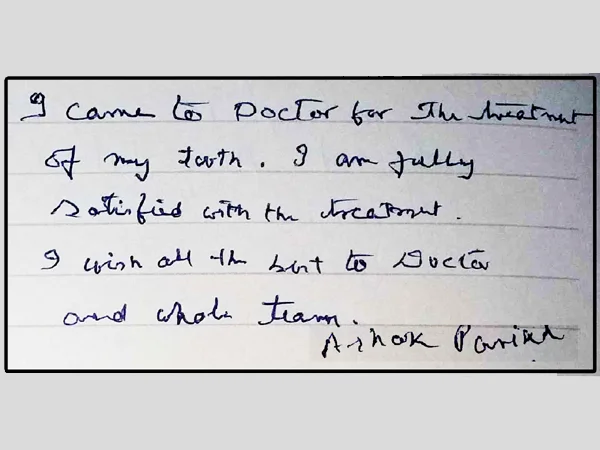 I came to Doctor for the treatment
of my tooth. I am fully
satisfied with the treatment.
I wish all the best to Doctor
and whole team.
Ashok Parikh